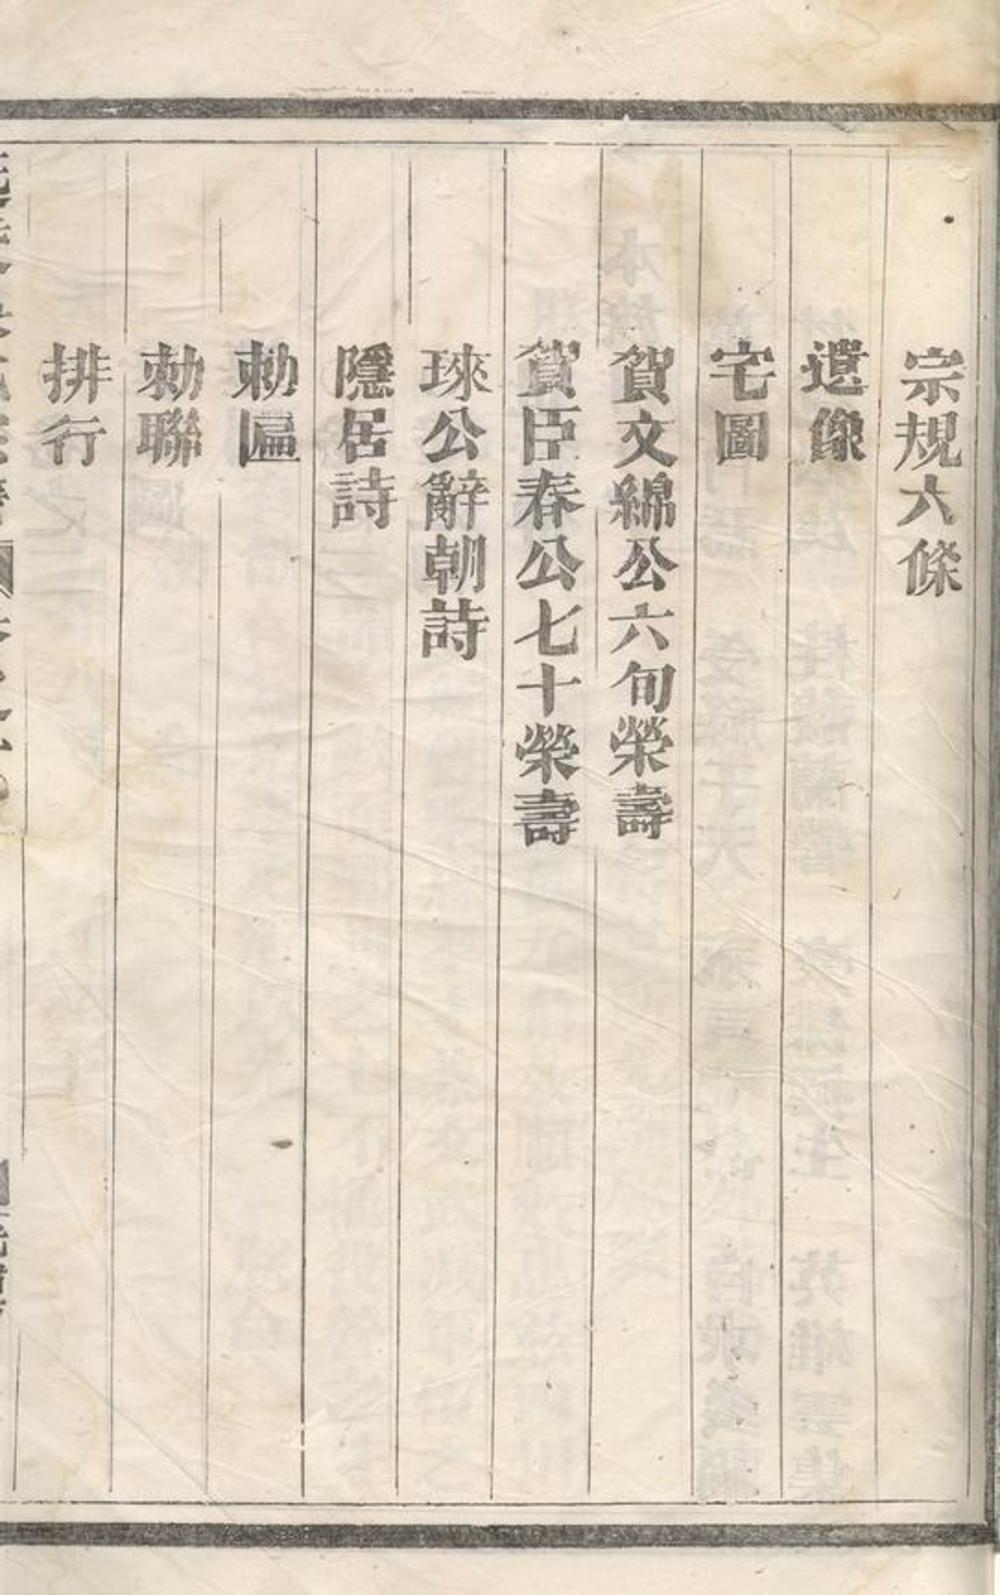 宗規六條
遺像
宅圖
賀文綿公六旬榮壽
賀臣春公七十榮壽
琜公辭朝詩
隱居詩
勅匾
勅聯
排行